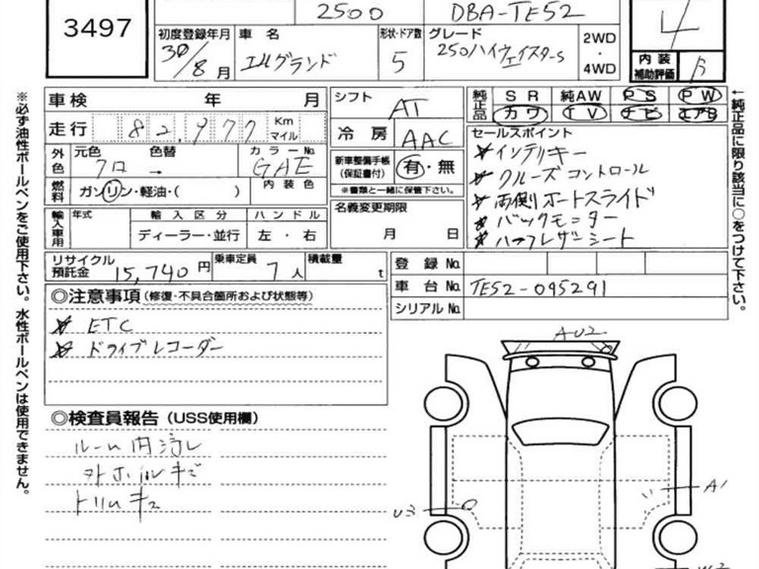 3497
2500
DBA-TE52
初度登録年月
30/8月
車名
エルグランド
形状・ドア数
5
グレード
250ハイウェイスターS
2WD
・
4WD
4
内装
補助評価
B
車検 年 月
走行 82,977 Km
マイル
シフト
AT
冷房
AAC
純正品
SR 純AW PS PW
カワ TV ナビ エアB
外色
元色
クロ
色替
カラーNo
GAE
内装色
燃料
ガソリン・軽油・( )
新車整備手帳
(保証書付)
有・無
※書類と一緒に保管下さい。
セールスポイント
インテリキー
クルーズコントロール
両側オートスライド
バックモニター
ハーフレザーシート
輸入車用
年式
輸入区分
ハンドル
ディーラー・並行
左・右
名義変更期限
月 日
リサイクル
預託金
15,740円
乗車定員
7人
積載量
t
登録No.
車台No.
TE52-095291
シリアルNo.
◎注意事項(修復・不具合箇所および状態等)
ETC
ドライブレコーダー
◎検査員報告(USS使用欄)
ルーム内汚レ
トリムキズ
AU2
A1
U3
※必ず油性ボールペンをご使用下さい。水性ボールペンは使用できません。
←純正品に限り該当に○をつけて下さい。